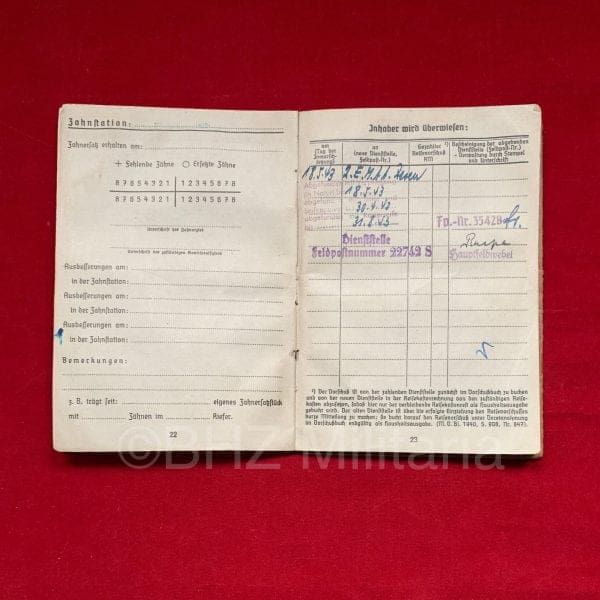 Zahnstation:
Zahnersatz erhalten am:
+ Fehlende Zähne ○ Ersetzte Zähne
8 7 6 5 4 3 2 1 | 1 2 3 4 5 6 7 8
8 7 6 5 4 3 2 1 | 1 2 3 4 5 6 7 8
Unterschrift des Zahnarztes
Ausbesserungen am:
in der Zahnstation:
Ausbesserungen am:
in der Zahnstation:
Ausbesserungen am:
in der Zahnstation:
Bemerkungen:
z. B. trägt seit: eigenes Zahnersatzstück
mit Zähnen im Kiefer.
22
Inhaber wird überwiesen:
am
(Tag der
an
(neue Dienststelle,
Feldpost-Nr.)
Gezahlter
Reisevorschuß
RM
¹) Bescheinigung der abgebenden
Dienststelle (Feldpost-Nr.)
- Verwaltung durch Stempel
und Unterschrift
18.5.43
18.5.43
30.4.43
31.8.43
Fp.-Nr. 35428
Dienststelle
Feldpostnummer 22742 S
Hauptfeldwebel
¹) Der Vorschuß ist von der zahlenden Dienststelle zunächst im Vorschußbuch zu buchen
und von der neuen Dienststelle in der Reisekostenrechnung von den zuständigen Reise-
kosten abzusetzen, sodaß hier nur der verbleibende Restbetrag als Haushaltsausgabe
gebucht wird. Der alten Dienststelle ist über die erfolgte Einziehung des Reisevorschusses
kurze Mitteilung zu machen; sie bucht darauf den Reisevorschuß unter Vereinnahmung
im Vorschußbuch endgültig als Haushaltsausgabe. (M. D. Bl. 1940, S. 808, Nr. 847).
23
©BHZ Militaria